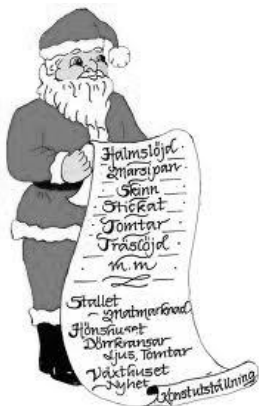 Halmslöjd
Marsipan
Skinn
Stickat
Tomtar
Träslöjd
m.m
Stallet
~ Matmarknad
Hönshuset
Dörrkransar
Ljus, Tomtar
Växthuset
~ Nyhet
Konstutställning